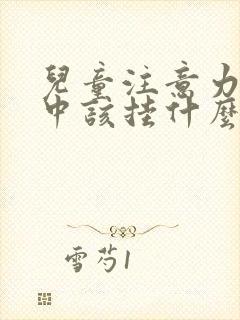 兒童注意力
中該挂什麼
雪芍1